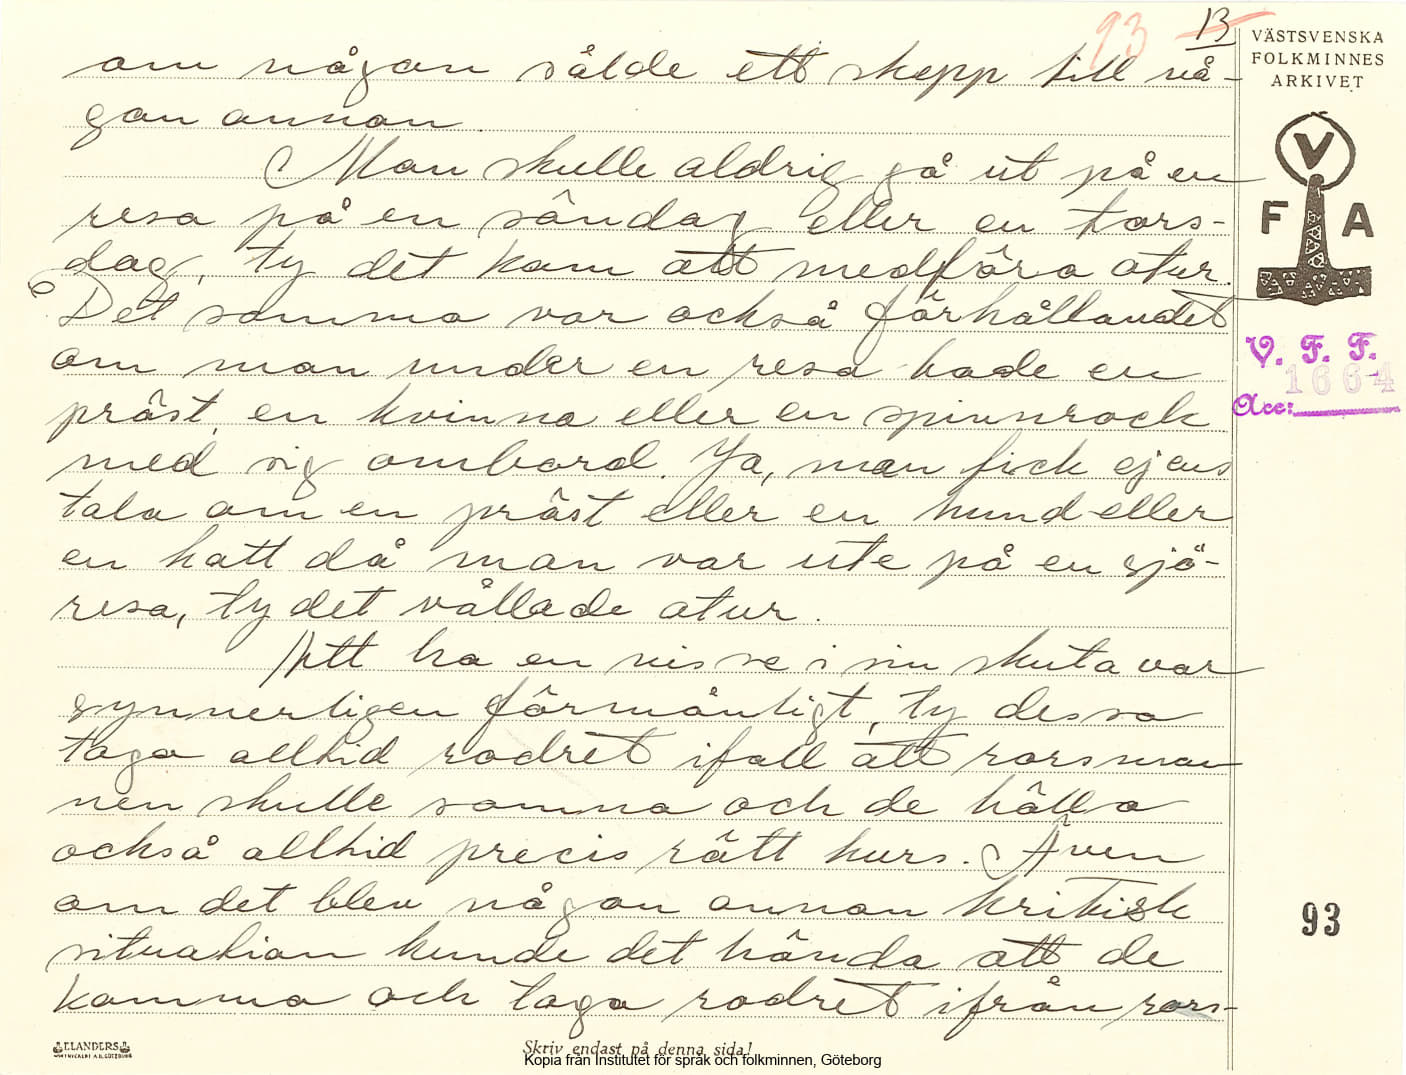 93 13
VÄSTSVENSKA
FOLKMINNES
ARKIVET
om någon sålde ett skepp till nå-
gon annan.
Man skulle aldrig gå ut på en
resa på en söndag eller en tors-
dag, ty det kom att medföra otur.
Det samma var också förhållandet
om man under en resa hade en
präst, en kvinna eller en spinnrock
med sig ombord. Ja, man fick ej ens
tala om en präst eller en hund eller
en katt då man var ute på en sjö-
resa, ty det vållade otur.
Att ha en nisse i sin skuta var
synnerligen förmånligt, ty dessa
toga alltid rodret ifall att rorsman
nen skulle somna och de hålla
också alltid precis rätt kurs. Även
om det blev någon annan kritisk
situation kunde det hända att de
komma och toga rodret ifrån rors-
V
F A
V. F. F.
1664
Acc:
93
ELANDERS
Skriv endast på denna sida!
Kopia från Institutet för språk och folkminnen, Göteborg